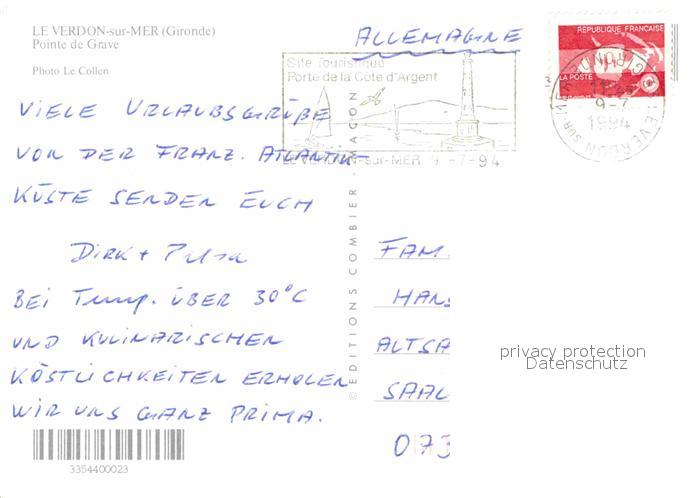 LE VERDON-sur-MER (Gironde)
Pointe de Grave
Photo Le Collen
ALLEMAGNE
RÉPUBLIQUE FRANÇAISE
LA POSTE
Site Touristique
Porte de la Côte d'Argent
LE VERDON-sur-MER 9-7-94
9-7
1994
LE VERDON SUR MER
GIRONDE
VIELE URLAUBSGRÜßE
VON DER FRANZ. ATLANTIK-
KÜSTE SENDEN EUCH
DIRK +
BEI TEMP. ÜBER 30°C
UND KULINARISCHEN
KÖSTLICHKEITEN ERHOLEN
WIR UNS GANZ PRIMA.
© EDITIONS COMBIER - MACON
FAM.
HANS
ALTSA
SAAL
073
privacy protection
Datenschutz
3354400023